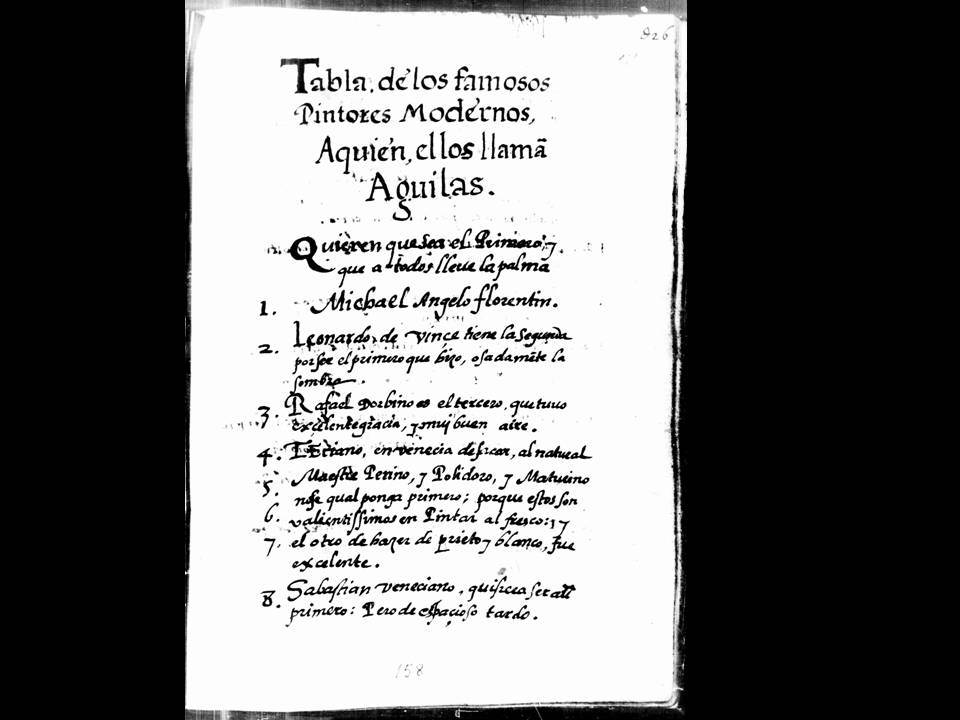 826
Tabla, de los famosos
Pintores Modernos,
Aquien, ellos llamã
Aguilas.
Quieren que sea el Primero; y
que a todos lleve la palma
1. Michael Angelo florentin.
2. Leonardo, de vince tiene la Segunda
por ser el primero que hizo, osadamẽte la
sombra.
3. Rafael Dorbino es el tercero, que tuvo
excelente gracia, y muy buen aire.
4. Teciano, en venecia de sacar, al natural
5. Maestre Perino, y Polidoro, y Maturino
no se qual ponga primero; porque estos son
6. valientissimos en Pintar al fresco: y
7. el otro de hazer de prieto y blanco, fue
excelente.
8. Sabastian veneciano, quisiera ser all
primero: Pero de espacioso tardo.
158